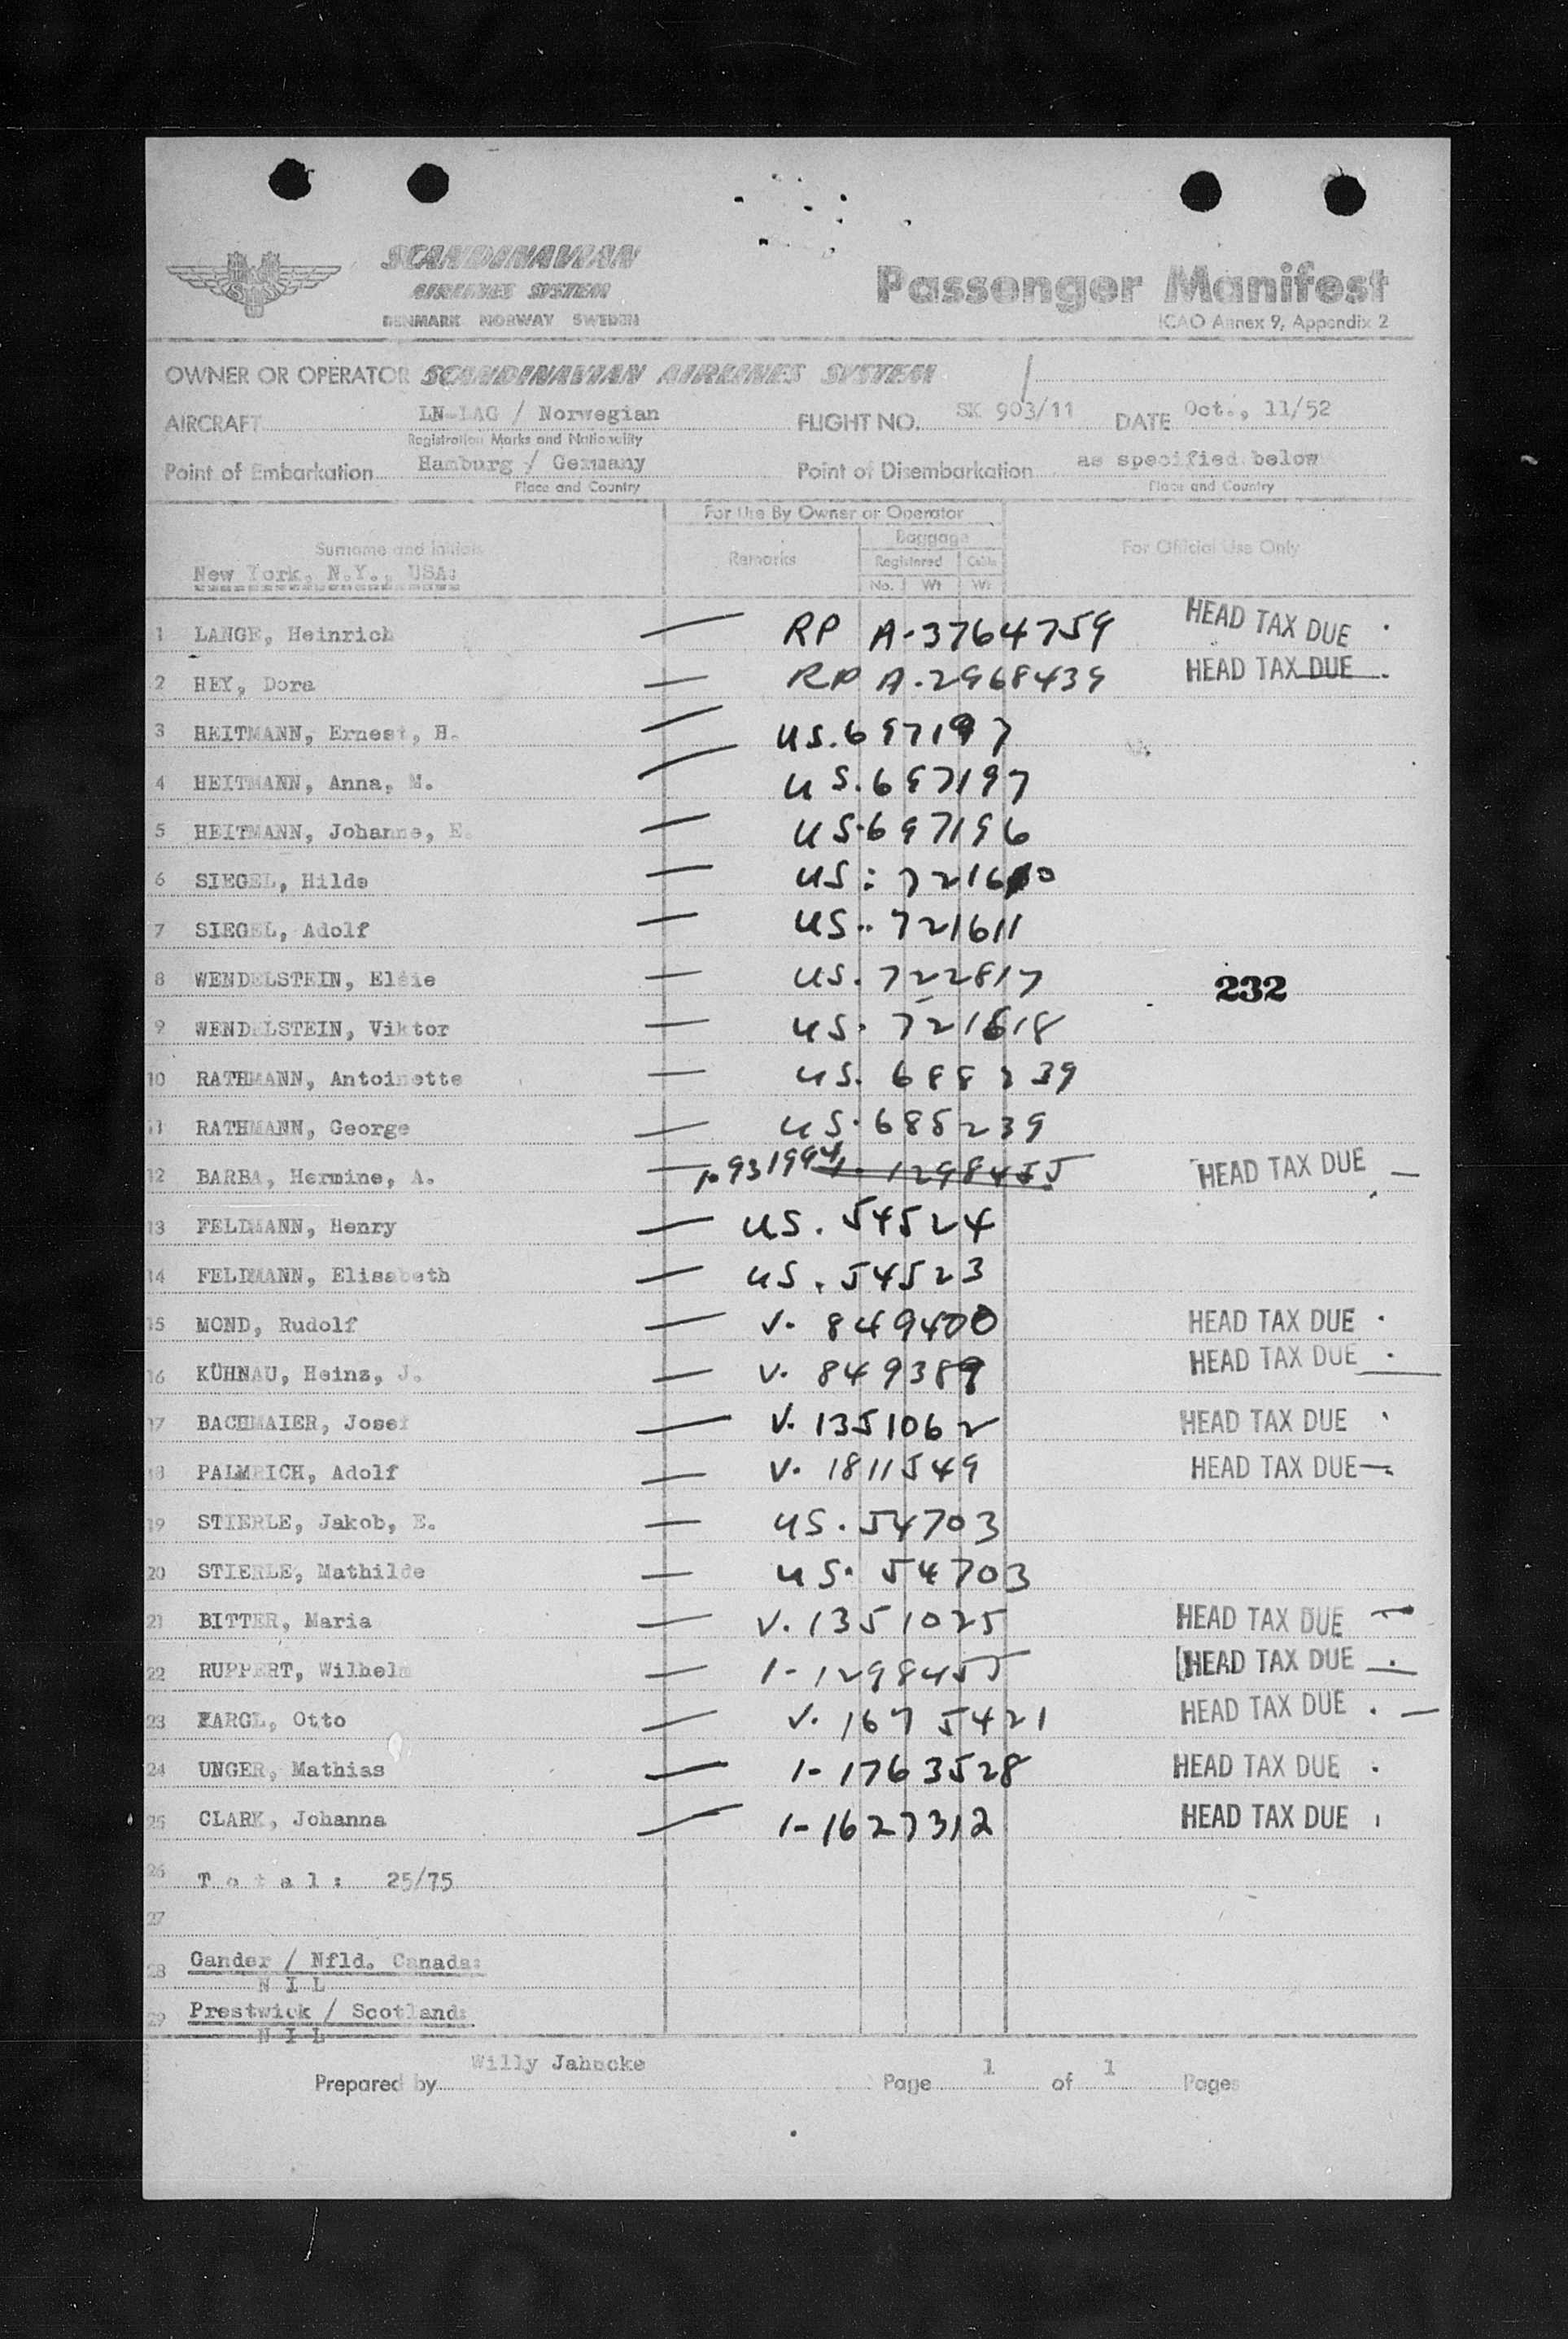 SCANDINAVIAN
AIRLINES SYSTEM
DENMARK NORWAY SWEDEN
Passenger Manifest
ICAO Annex 9, Appendix 2
OWNER OR OPERATOR SCANDINAVIAN AIRLINES SYSTEM
AIRCRAFT LN-LAG / Norwegian FLIGHT NO. SK 903/11 DATE Oct., 11/52
Registration Marks and Nationality
Point of Embarkation Hamburg / Germany Point of Disembarkation as specified below
Place and Country Place and Country
For Use By Owner or Operator
Surname and Initials Remarks Baggage For Official Use Only
Registered Cabin
New York, N.Y., USA: No. Wt Wt
1 LANGE, Heinrich — RP A-3764759 HEAD TAX DUE
2 HEY, Dora — RP A.2968439 HEAD TAX DUE
3 HEITMANN, Ernest, H. — US.697197
4 HEITMANN, Anna, M. — US.697197
5 HEITMANN, Johanne, E. — US.697196
6 SIEGEL, Hilde — US: 721610
7 SIEGEL, Adolf — US.. 721611
8 WENDELSTEIN, Elsie — US. 722817 232
9 WENDELSTEIN, Viktor — US. 721618
10 RATHMANN, Antoinette — US. 688239
11 RATHMANN, George — US.688239
12 BARBA, Hermine, A. — 1-931994 1-1298455 HEAD TAX DUE —
13 FELDMANN, Henry — US. 54524
14 FELDMANN, Elisabeth — US. 54523
15 MOND, Rudolf — V. 849400 HEAD TAX DUE
16 KÜHNAU, Heinz, J. — V. 849389 HEAD TAX DUE
17 BACHMAIER, Josef — V. 1351062 HEAD TAX DUE
18 PALMRICH, Adolf — V. 1811549 HEAD TAX DUE —
19 STIERLE, Jakob, E. — US. 54703
20 STIERLE, Mathilde — US. 54703
21 BITTER, Maria — V. 1351025 HEAD TAX DUE —
22 RUPPERT, Wilhelm — 1-1298455 HEAD TAX DUE
23 KARGL, Otto — V. 1675421 HEAD TAX DUE —
24 UNGER, Mathias — 1-1763528 HEAD TAX DUE
25 CLARK, Johanna — 1-1627312 HEAD TAX DUE
26 T o t a l : 25/75
27
28 Gander / Nfld. Canada:
N I L
29 Prestwick / Scotland:
N I L
Prepared by Willy Jahncke Page 1 of 1 Pages